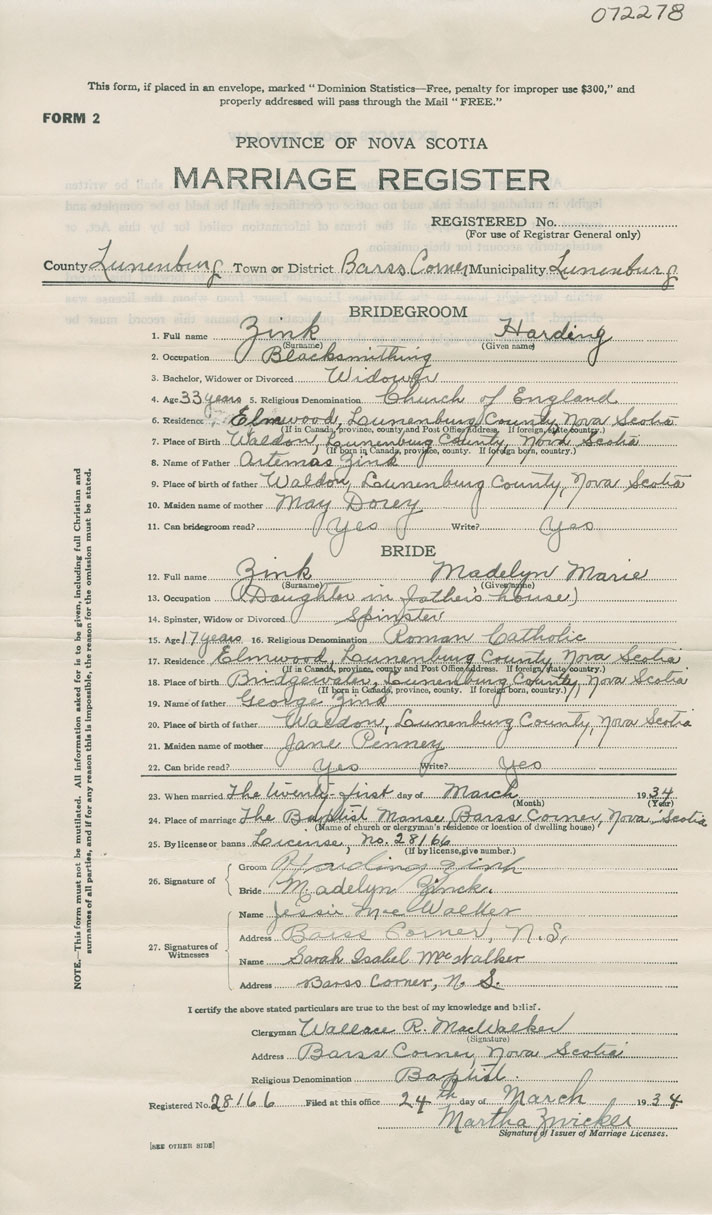 072278
This form, if placed in an envelope, marked "Dominion Statistics—Free, penalty for improper use $300," and
properly addressed will pass through the Mail "FREE."
FORM 2
PROVINCE OF NOVA SCOTIA
MARRIAGE REGISTER
REGISTERED No.
(For use of Registrar General only)
County Lunenburg Town or District Barss Corner Municipality Lunenburg
BRIDEGROOM
1. Full name Zink Harding
(Surname) (Given name)
2. Occupation Blacksmithing
3. Bachelor, Widower or Divorced Widower
4. Age 33 years 5. Religious Denomination Church of England
6. Residence Elmwood, Lunenburg County, Nova Scotia
(If in Canada, province, county and Post Office address. If foreign, state, country.)
7. Place of Birth Waldon, Lunenburg County, Nova Scotia
(If born in Canada, province, county. If foreign born, country.)
8. Name of Father Artemas Zink
9. Place of birth of father Waldon, Lunenburg County, Nova Scotia
10. Maiden name of mother May Dorey
11. Can bridegroom read? Yes Write? Yes
BRIDE
12. Full name Zink Madelyn Marie
(Surname) (Given name)
13. Occupation (Daughter in father's house)
14. Spinster, Widow or Divorced Spinster
15. Age 17 years 16. Religious Denomination Roman Catholic
17. Residence Elmwood, Lunenburg County, Nova Scotia
(If in Canada, province, county and Post Office address. If foreign, state, country.)
18. Place of birth Bridgewater, Lunenburg County, Nova Scotia
(If born in Canada, province, county. If foreign born, country.)
19. Name of father George Zink
20. Place of birth of father Waldon, Lunenburg County, Nova Scotia
21. Maiden name of mother Jane Penney
22. Can bride read? Yes Write? Yes
23. When married The twenty-first day of March 1934
(Month) (Year)
24. Place of marriage The Baptist Manse, Barss Corner, Nova Scotia
(Name of church or clergyman's residence or location of dwelling house)
25. By license or banns License, no. 28166
(If by license, give number.)
26. Signature of Groom Harding Zink
Bride Madelyn Zinck.
27. Signatures of Witnesses Name Jessie MacWalker
Address Barss Corner, N.S.
Name Sarah Isabel McWalker
Address Barss Corner, N. S.
I certify the above stated particulars are true to the best of my knowledge and belief.
Clergyman Wallace R. MacWalker
(Signature)
Address Barss Corner, Nova Scotia
Religious Denomination Baptist.
Registered No. 28166 Filed at this office 24th day of March 1934
Martha Zwicker
Signature of Issuer of Marriage Licenses.
[SEE OTHER SIDE]
NOTE.—This form must not be mutilated. All information asked for is to be given, including full Christian and
surnames of all parties, and if for any reason this is impossible, the reason for the omission must be stated.